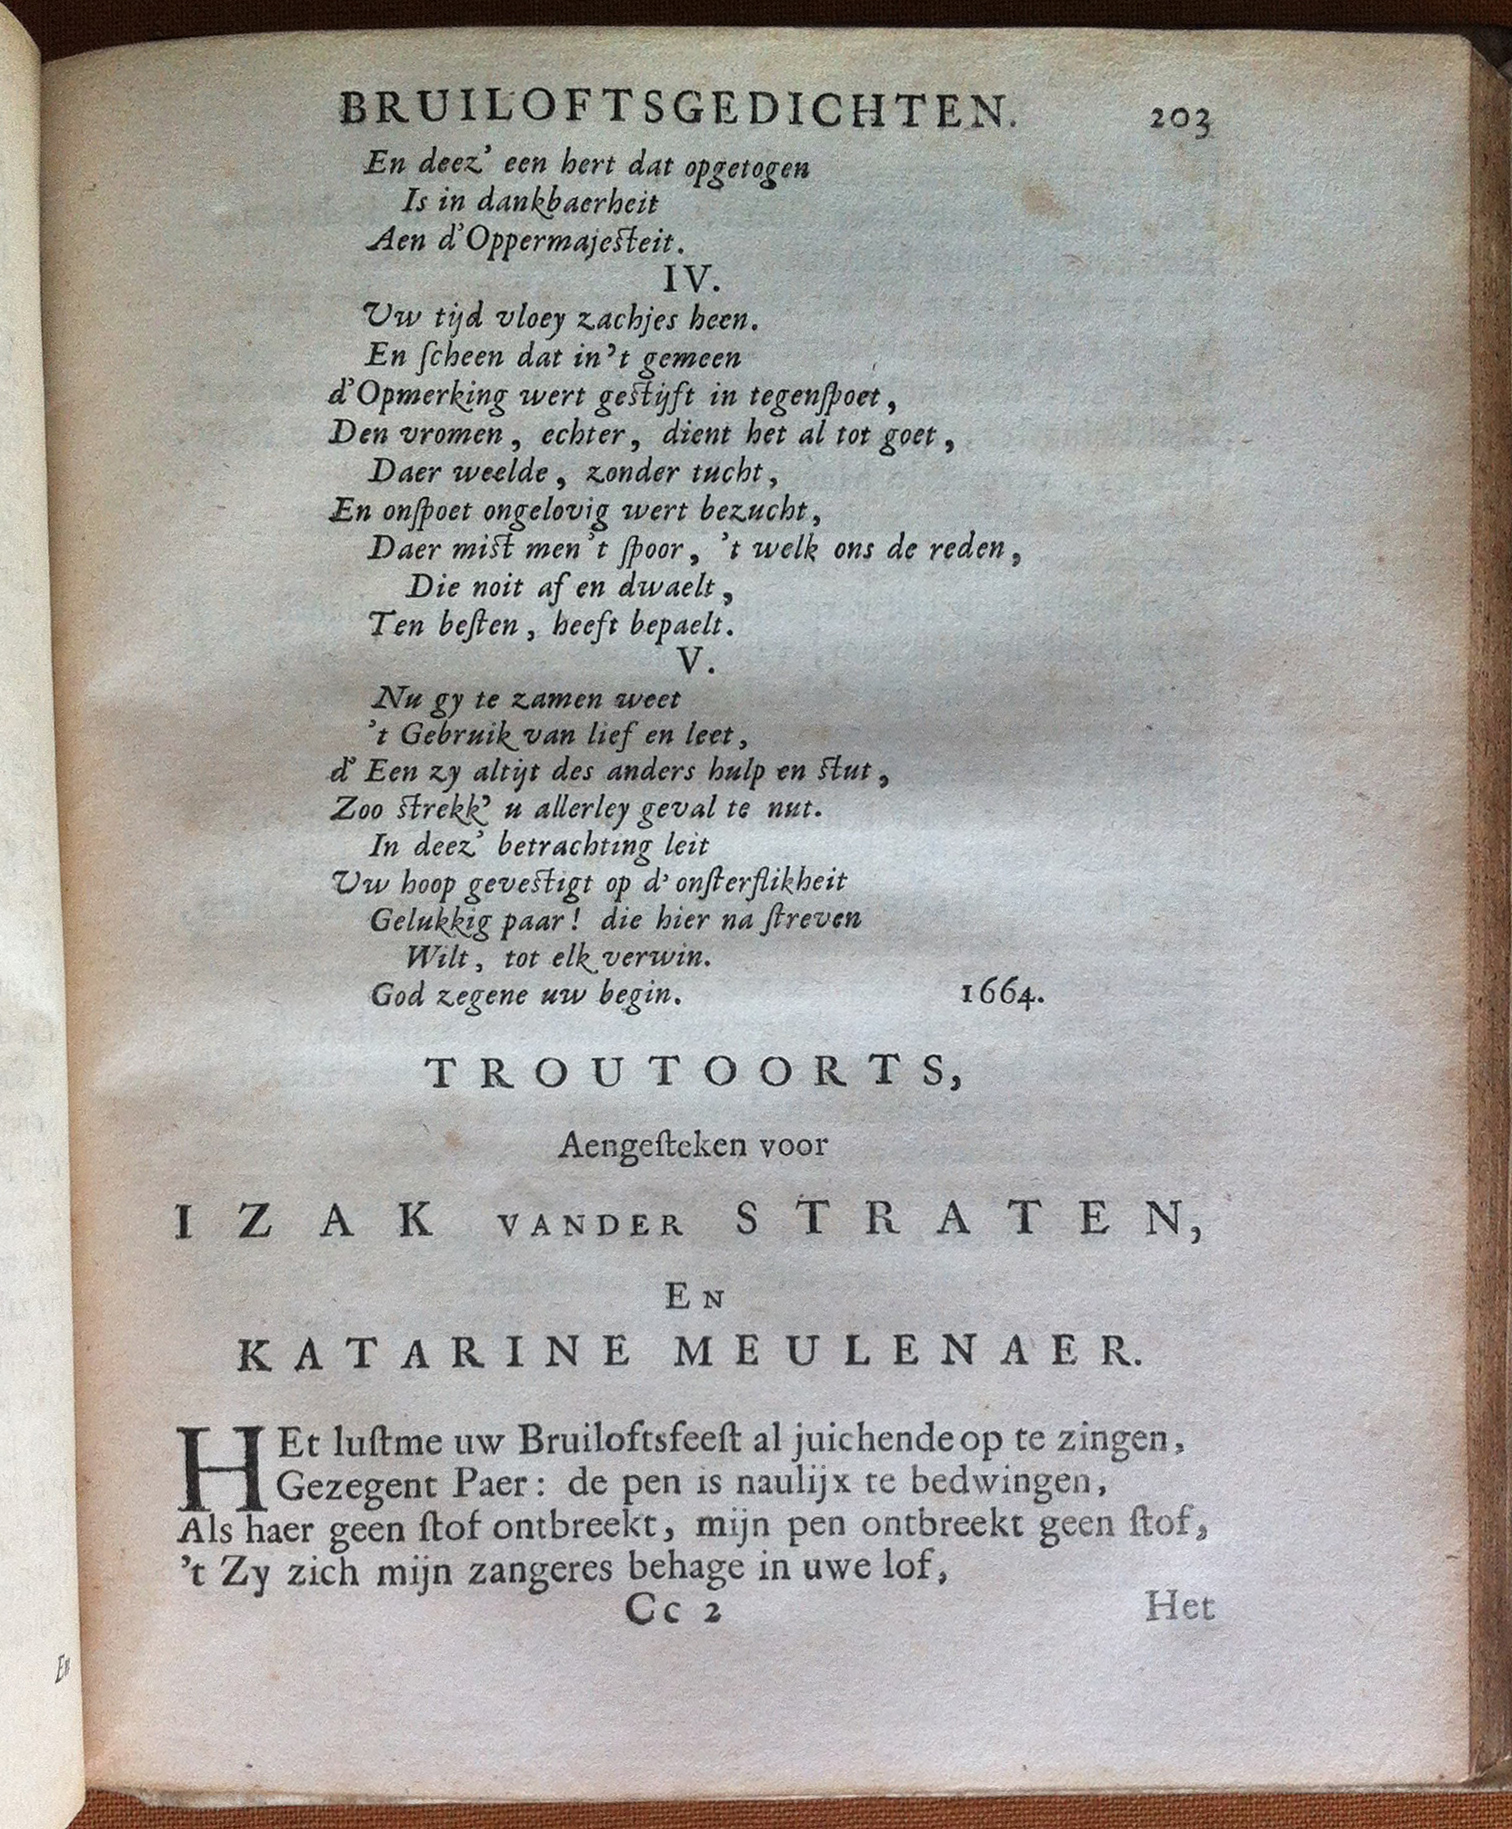 BRUILOFTSGEDICHTEN. 203
En deez' een hert dat opgetogen
Is in dankbaerheit
Aen d'Oppermajesteit.
IV.
Uw tijd vloey zachjes heen.
En ſcheen dat in't gemeen
d'Opmerking wert gestijft in tegenſpoet,
Den vromen, echter, dient het al tot goet,
Daer weelde, zonder tucht,
En onſpoet ongelovig wert bezucht,
Daer mist men't ſpoor, 't welk ons de reden,
Die noit af en dwaelt,
Ten beſten, heeft bepaelt.
V.
Nu gy te zamen weet
't Gebruik van lief en leet,
d' Een zy altijt des anders hulp en stut,
Zoo strekk' u allerley geval te nut.
In deez' betrachting leit
Uw hoop gevestigt op d' onſterflikheit
Gelukkig paar! die hier na ſtreven
Wilt, tot elk verwin.
God zegene uw begin. 1664.
TROUTOORTS,
Aengeſteken voor
IZAK VANDER STRATEN,
EN
KATARINE MEULENAER.
HEt luſtme uw Bruiloftsfeeſt al juichende op te zingen,
Gezegent Paer: de pen is naulijx te bedwingen,
Als haer geen ſtof ontbreekt, mijn pen ontbreekt geen ſtof,
't Zy zich mijn zangeres behage in uwe lof,
Cc 2 Het
En